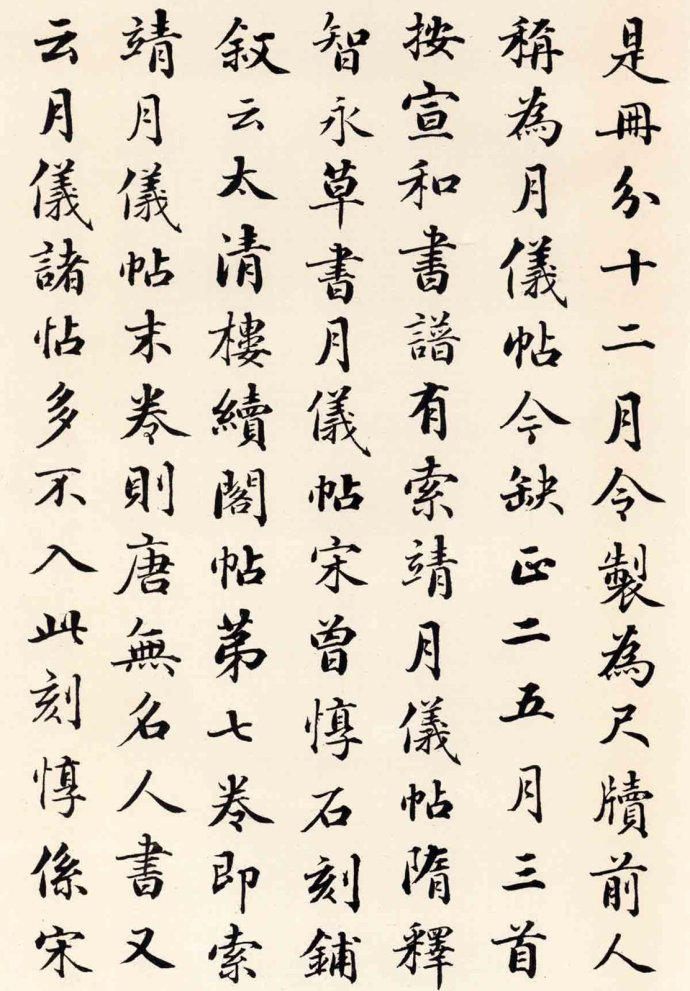 是冊分十二月令製為尺牘前人
稱為月儀帖今缺正二五月三首
按宣和書譜有索靖月儀帖隋釋
智永草書月儀帖宋曾惇石刻鋪
敘云太清樓續閣帖苐七卷即索
靖月儀帖末卷則唐無名人書又
云月儀諸帖多不入此刻惇係宋